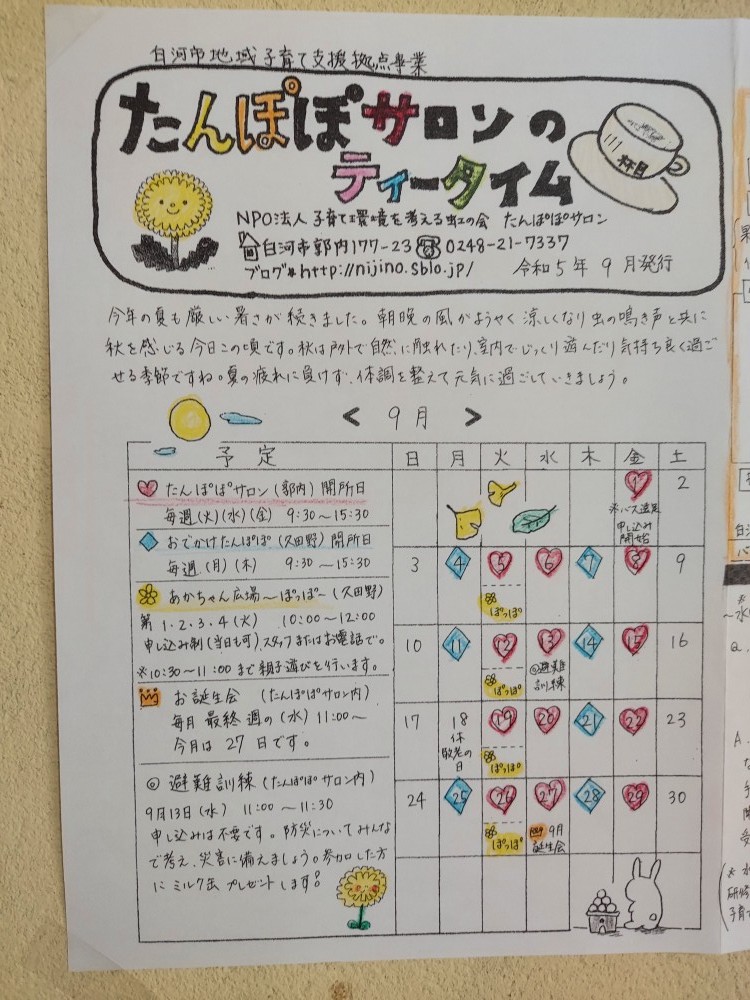 白河市地域子育て支援拠点事業
たんぽぽサロンの
ティータイム
杯目
NPO法人 子育て環境を考える虹の会 たんぽぽサロン
白河市郭内177-23 ☎ 0248-21-7337
ブログ*http://nijino.sblo.jp/ 令和5年 9月発行
今年の夏も厳しい暑さが続きました。朝晩の風がようやく涼しくなり虫の鳴き声と共に
秋を感じる今日この頃です。秋は戸外で自然に触れたり、室内でじっくり遊んだり気持ち良く過ご
せる季節ですね。夏の疲れに負けず、体調を整えて元気に過ごしていきましょう。
< 9月 >
予定
♡ たんぽぽサロン(郭内)開所日
毎週(火)(水)(金) 9:30~15:30
◆ おでかけたんぽぽ(久田野)開所日
毎週(月)(木) 9:30~15:30
あかちゃん広場~ぽっぽ~(久田野)
第1.2.3.4(火) 10:00~12:00
申し込み制(当日も可)、スタッフまたはお電話で。
※10:30~11:00まで親子遊びを行います。
お誕生会 (たんぽぽサロン内)
毎月 最終週の(水) 11:00~
今月は 27日です。
◎ 避難訓練(たんぽぽサロン内)
9月13日(水) 11:00~11:30
申し込みは不要です。防災についてみんな
で考え、災害に備えましょう。参加した方
に ミルク缶 プレゼントします!
日 月 火 水 木 金 土
1 2
※バス遠足
申し込み
開始
3 4 5 6 7 8 9
ぽっぽ
10 11 12 13 14 15 16
◎避難
訓練
ぽっぽ
17 18 19 20 21 22 23
休
敬老の
日
ぽっぽ
24 25 26 27 28 29 30
ぽっぽ
9月
誕生会